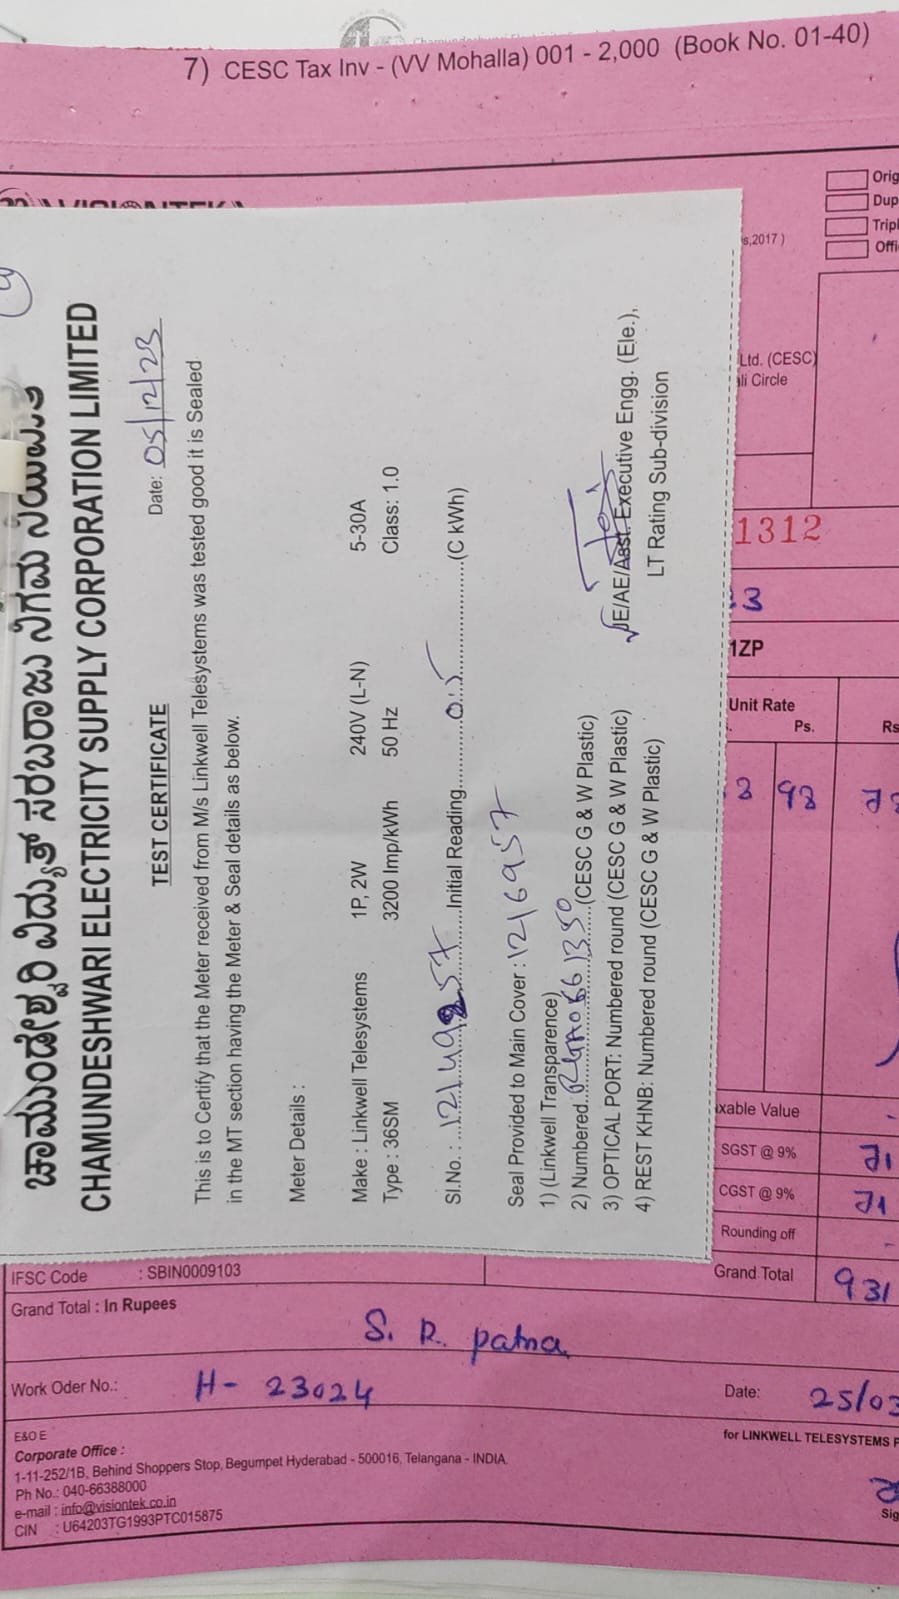 7) CESC Tax Inv - (VV Mohalla) 001 - 2,000 (Book No. 01-40)
VISIONTEK
Orig
Dup
Tripl
Offi
s,2017 )
Ltd. (CESC)
li Circle
1312
3
1ZP
Unit Rate
Ps.
Rs
3 93
xable Value
SGST @ 9% 71
CGST @ 9% 71
Rounding off
Grand Total 931
ಚಾಮುಂಡೇಶ್ವರಿ ವಿದ್ಯುತ್ ಸರಬರಾಜು ನಿಗಮ ನಿಯಮಿತ
CHAMUNDESHWARI ELECTRICITY SUPPLY CORPORATION LIMITED
TEST CERTIFICATE
Date: 05/12/23
This is to Certify that the Meter received from M/s Linkwell Telesystems was tested good it is Sealed
in the MT section having the Meter & Seal details as below.
Meter Details :
Make : Linkwell Telesystems 1P, 2W 240V (L-N) 5-30A
Type : 36SM 3200 Imp/kWh 50 Hz Class: 1.0
Sl.No. : Initial Reading 0.5 (C kWh)
Seal Provided to Main Cover : 1216957
1) (Linkwell Transparence)
2) Numbered (CESC G & W Plastic)
3) OPTICAL PORT: Numbered round (CESC G & W Plastic)
4) REST KHNB: Numbered round (CESC G & W Plastic)
JE/AE/Asst. Executive Engg. (Ele.),
LT Rating Sub-division
IFSC Code : SBIN0009103
Grand Total : In Rupees
S. R. patna
Work Oder No.: H- 23024
Date: 25/03
E&O E
Corporate Office :
1-11-252/1B, Behind Shoppers Stop, Begumpet Hyderabad - 500016, Telangana - INDIA.
Ph No.: 040-66388000
e-mail : info@visiontek.co.in
CIN : U64203TG1993PTC015875
for LINKWELL TELESYSTEMS P
Sig